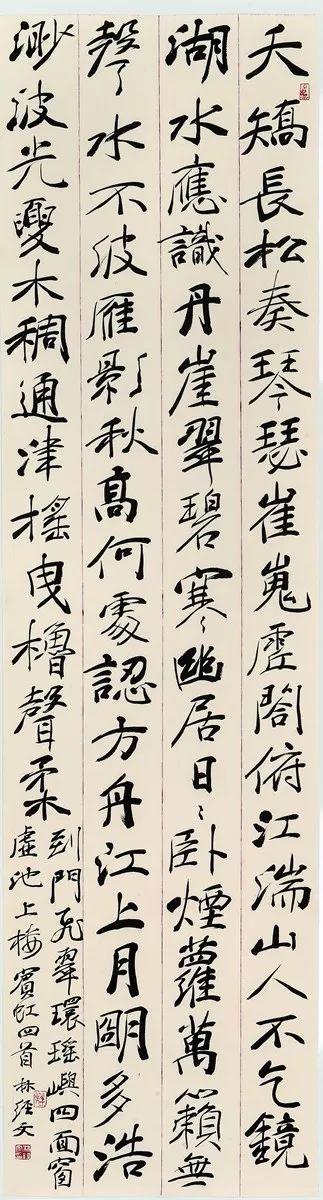 夭矯長松奏琴瑟崔嵬虛閣俯江湍山人不乞鏡
湖水應識丹崖翠碧寒寒幽居日日臥煙蘿萬籟無
聲水不波雁影秋高何處認方舟江上月明多浩
渺波光夏木稠通津搖曳櫓聲柔
到門飛翠環瑤嶼四面窗
虛池上梅賓虹四首林經文